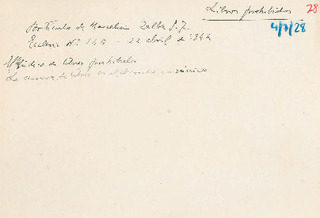 Libros prohibidos 28
4/7/28
Artículo de Marcelino Zalba S.J.
Ecclesia Nº 145 - 22 abril de 1944
Índice de libros prohibidos
La censura de libros en el Derecho canónico